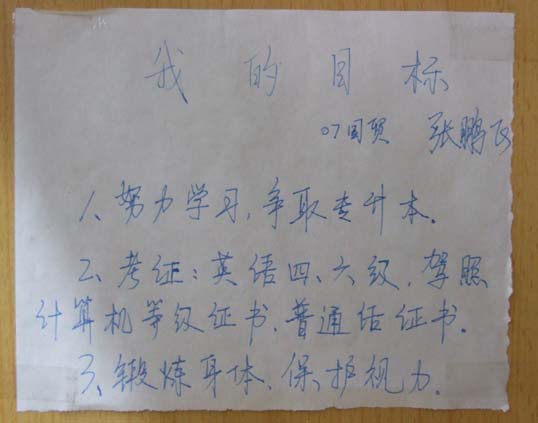 我的目标
07国贸 张鹏飞
1、努力学习，争取专升本。
2、考证：英语四、六级，驾照
计算机等级证书、普通话证书。
3、锻炼身体、保护视力。